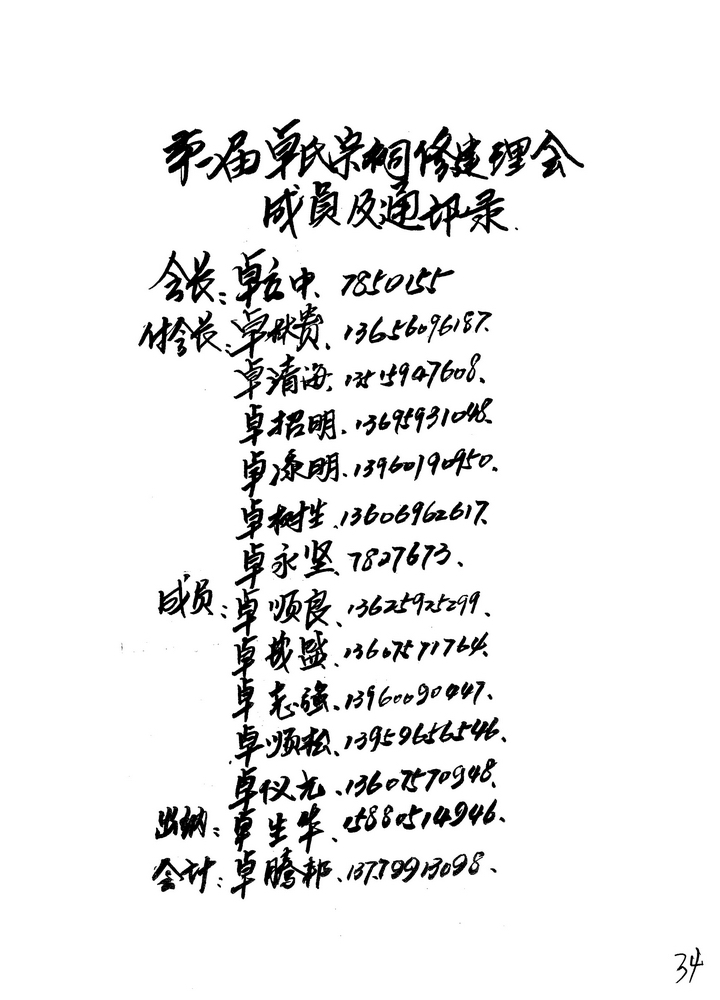 第一届卓氏宗祠修建理会
成員及通讯录.
会长:卓立中、7850155
付会长:卓 贵、13656096187.
卓清海、13515947608、
卓招明、13695931048、
卓添明、13960190950、
卓树生、13606962617、
卓永坚、7827673、
成员:卓顺良、13625925299、
卓 盛、13607571764、
卓志强、13960090447、
卓顺松、13959656546、
卓仪元、13607570948、
出纳:卓生华、15880514946、
会计:卓腾邦、13779913098、
34